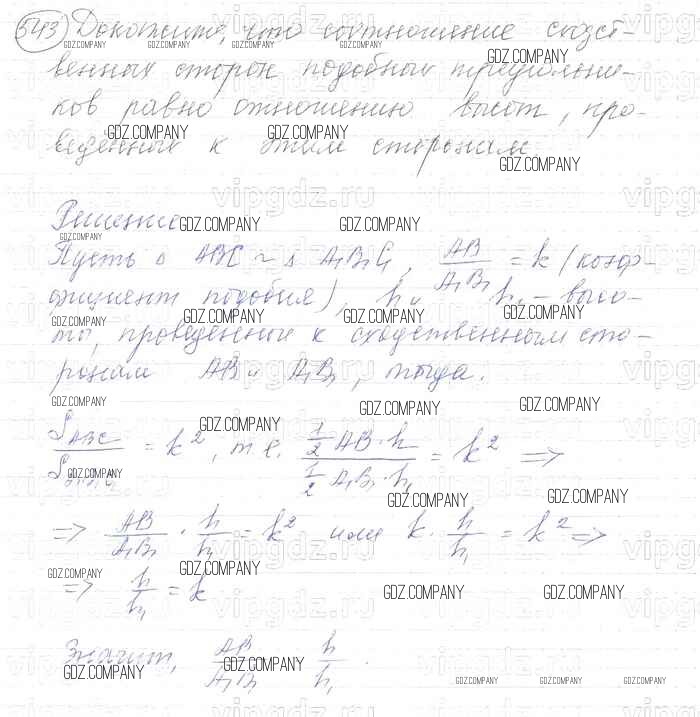 543 Докажите, что соотношение сходст-
венных сторон подобных треугольни-
ков равно отношению высот, про-
ведённых к этим сторонам
Решение
Пусть Δ ABC ~ Δ A₁B₁C₁, AB/A₁B₁ = k (коэф-
фициент подобия), h и h₁ – высо-
ты, проведённые к сходственным сто-
ронам AB и A₁B₁, тогда.
S ABC / S = k², т.е. 1/2 AB · h / 1/2 A₁B₁ · h₁ = k² =>
=> AB/A₁B₁ · h/h₁ = k² или k · h/h₁ = k² =>
=> h/h₁ = k
Значит, AB/A₁B₁ h/h₁.
GDZ.COMPANY
vipgdz.ru